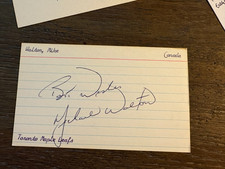 Walton, Mike Canada
Best Wishes
Michael Walton
Toronto Maple Leafs